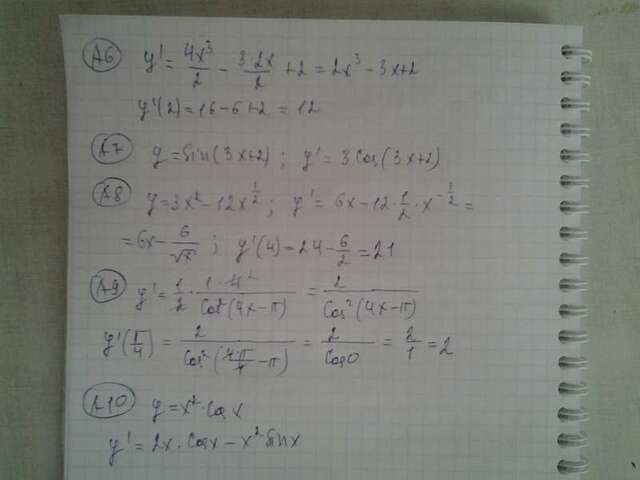 A6 y' = 4x³/2 - 3·2x/2 + 2 = 2x³ - 3x + 2
y'(2) = 16 - 6 + 2 = 12
A7 y = sin(3x+2); y' = 3cos(3x+2)
A8 y = 3x² - 12x^(1/2); y' = 6x - 12·1/2·x^(-1/2) =
= 6x - 6/√x; y'(4) = 24 - 6/2 = 21
A9 y' = 1/2 · 1·4/cos²(4x-π) = 2/cos²(4x-π)
y'(π/4) = 2/cos²(4π/4 - π) = 2/cos0 = 2/1 = 2
A10 y = x²·cosx
y' = 2x·cosx - x²·sinx